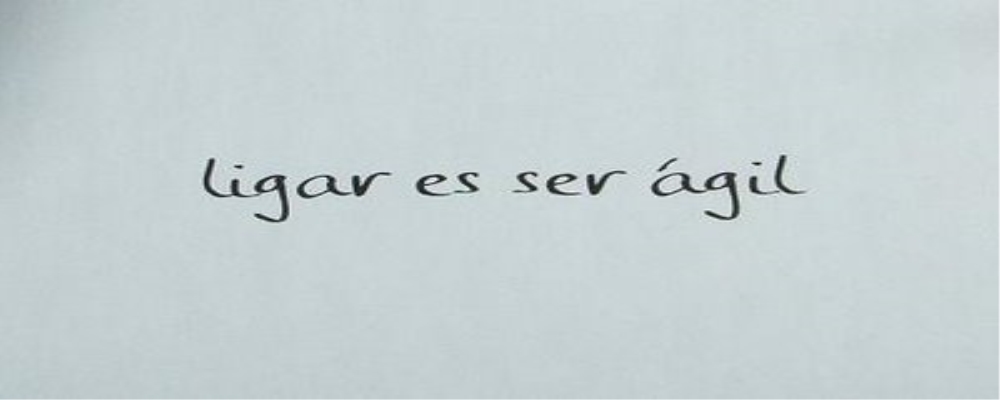 ligar es ser ágil